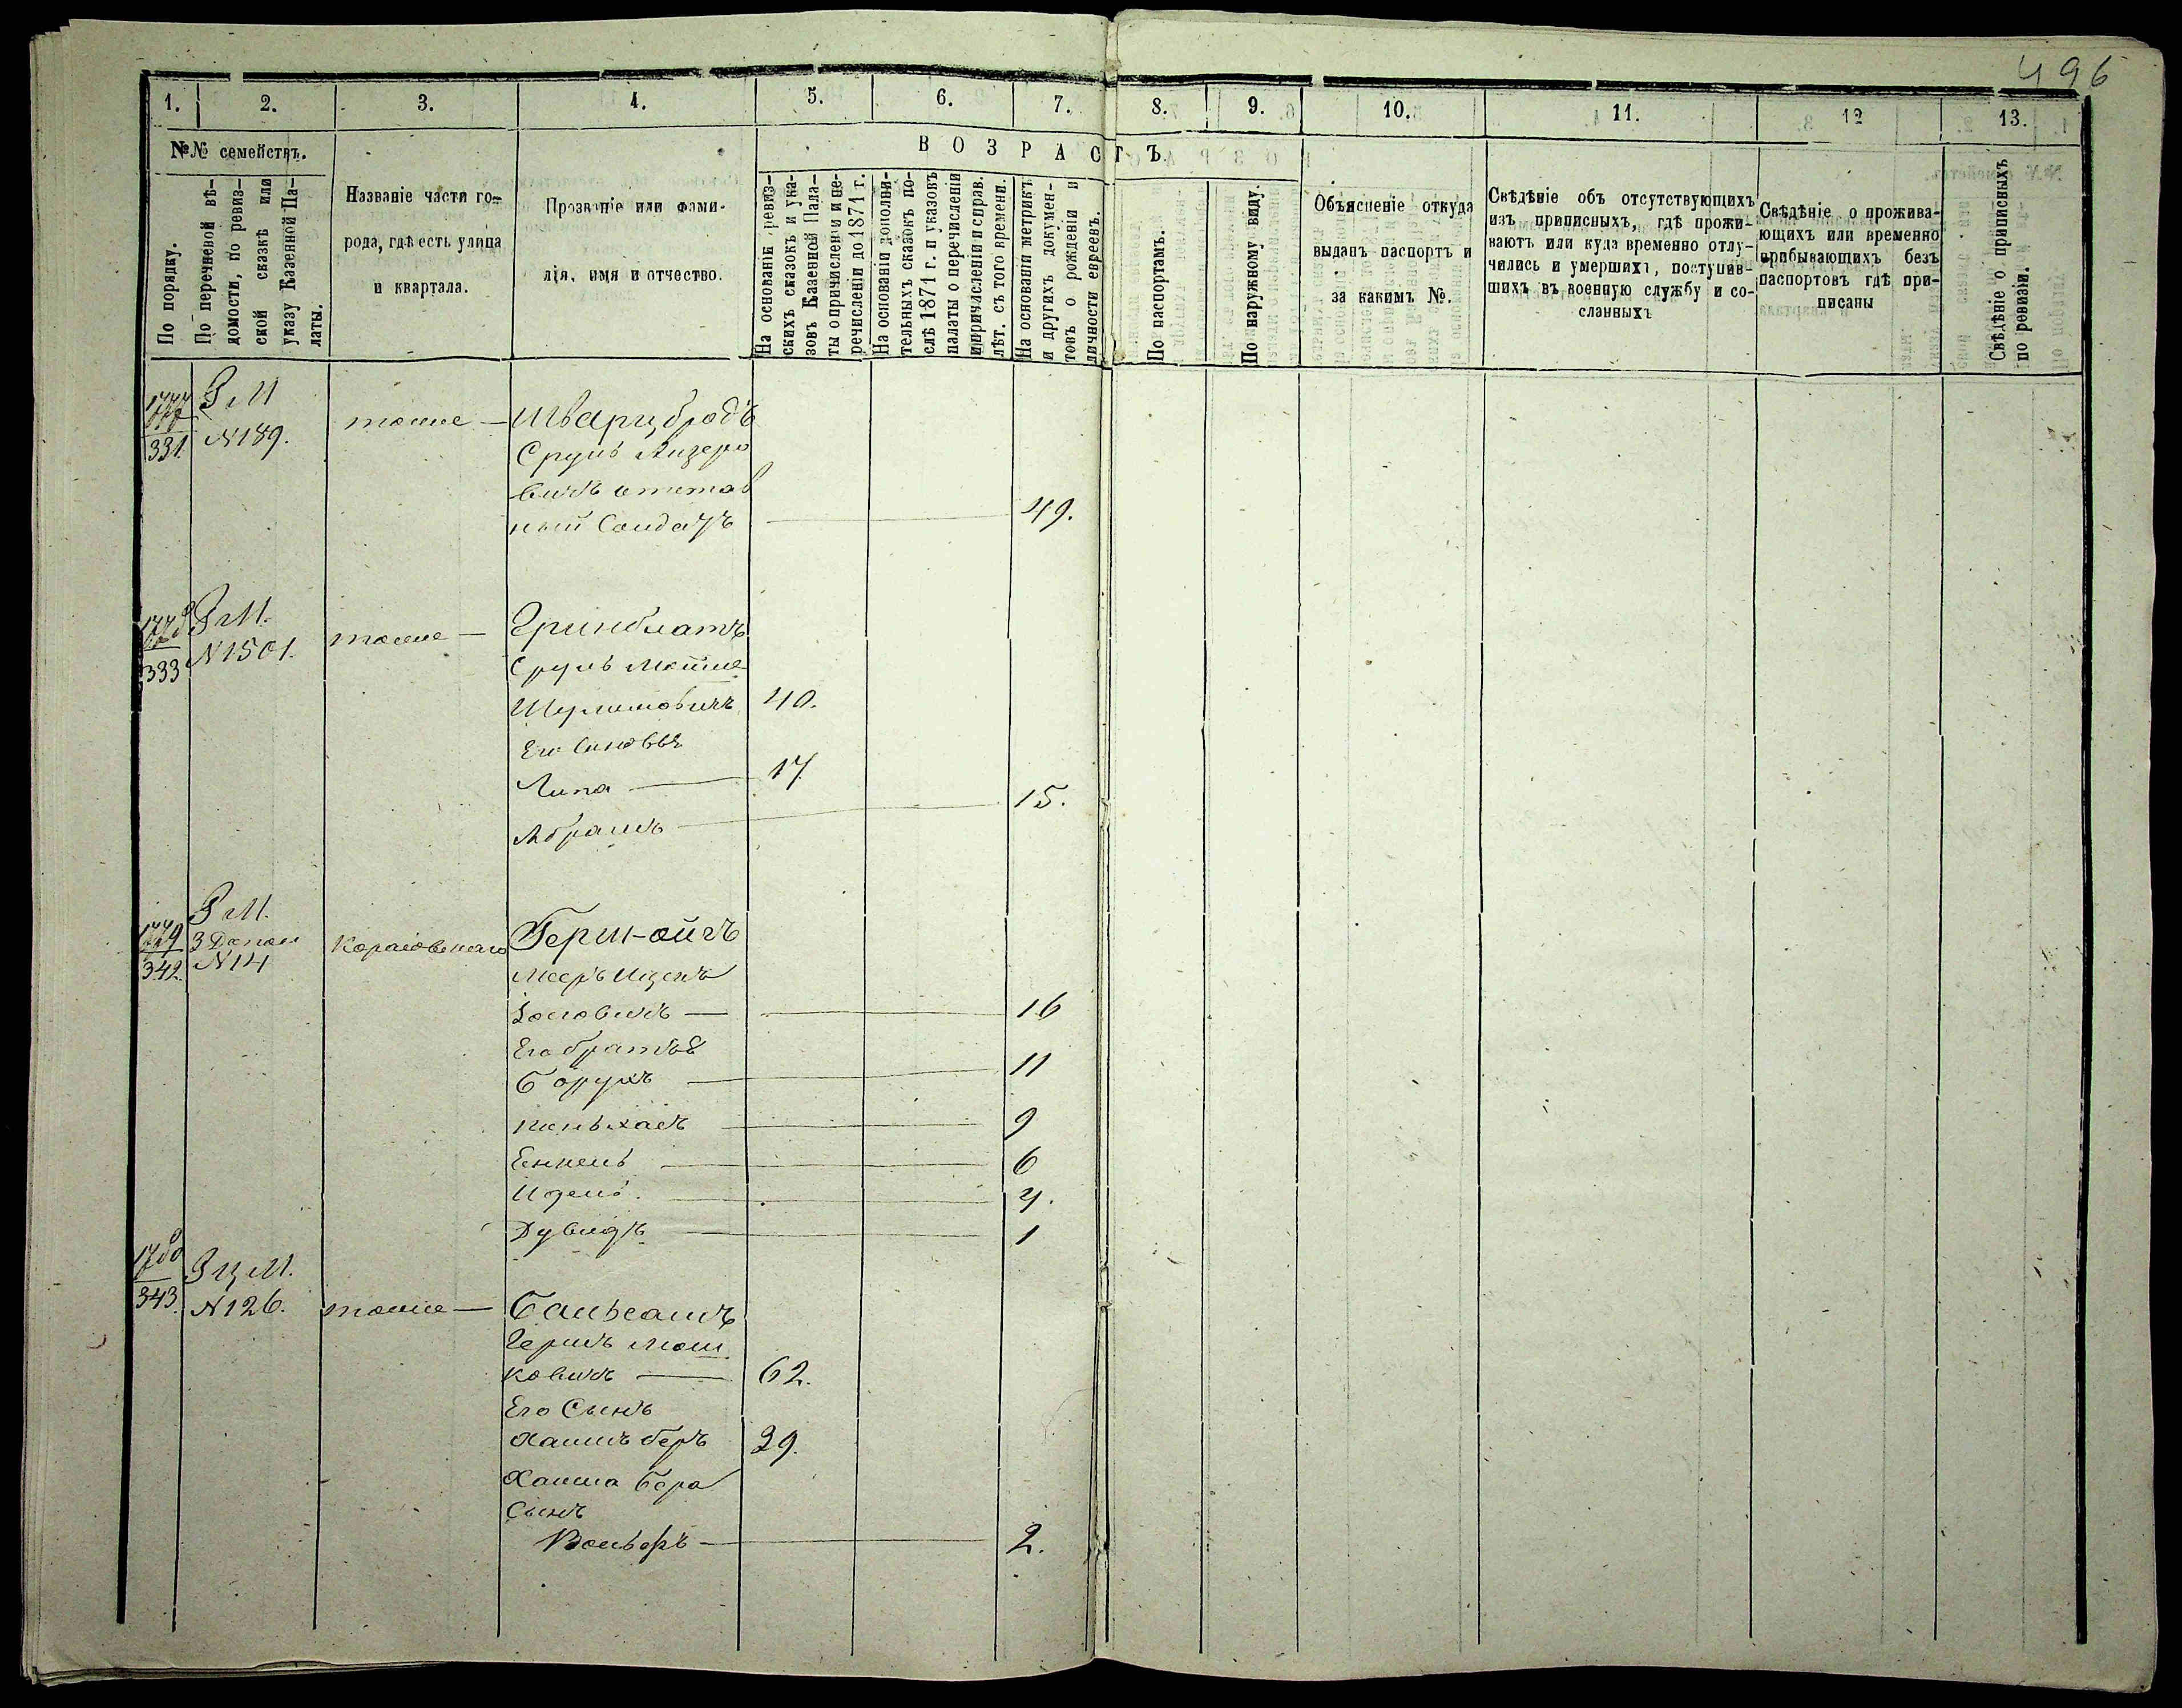 496
1. 2. 3. 4. 5. 6. 7. 8. 9. 10. 11. 12 13.
№№ семействъ.
По порядку.
По перечневой вѣ-
домости, по ревиз-
ской сказкѣ или
указу Казенной Па-
латы.
Названіе части го-
рода, гдѣ есть улица
и квартала.
Прозваніе или фами-
лія, имя и отчество.
ВОЗРАСТЪ.
На основаніи ревиз-
скихъ сказокъ и ука-
зовъ Казенной Пала-
ты о причисленіи и пе-
речисленіи до 1871 г.
На основаніи дополни-
тельныхъ сказокъ по-
слѣ 1871 г. и указовъ
палаты о перечисленіи
и причисленіи и справ.
лѣт. съ того времени.
На основаніи метрикъ
и другихъ докумен-
товъ о рожденіи и
личности евреевъ.
По паспортамъ.
По наружному виду.
Объясненіе откуда
выданъ паспортъ и
за какимъ №.
Свѣдѣніе объ отсутствующихъ
изъ приписныхъ, гдѣ прожи-
ваютъ или куда временно отлу-
чились и умершихъ, поступив-
шихъ въ военную службу и со-
сланныхъ
Свѣдѣніе о прожива-
ющихъ или временно
прибывающихъ безъ
паспортовъ гдѣ при-
писаны
Свѣдѣніе о приписныхъ
по ревизіи.
1777
331.
Р М
N 189.
тоже —
Шварцбродъ
Сруль Лизеро
вичъ отстав
ный Солдатъ 49.
1778
333
Р М.
N 1501.
тоже —
Гринблатъ
Сруль Мойше
Шулимовичъ 40.
Его Сыновья
Липа — 17
Абрамъ — 15.
1779
342.
Р М.
3 Допол
N 14
Гершойгъ
Мееръ Ицекъ
16
Его братья
Борухъ — 11
Пеньхасъ — 9
Енкель — 6
Идель. — 4.
Дувидъ — 1
1780
343.
Р Ц М.
N 126.
тоже —
Бальсамъ
Гершъ Мош
ковичъ — 62.
Его Сынъ
Хаимъ Беръ 39.
Хаима Бера
Сынъ
Вольфъ — 2.